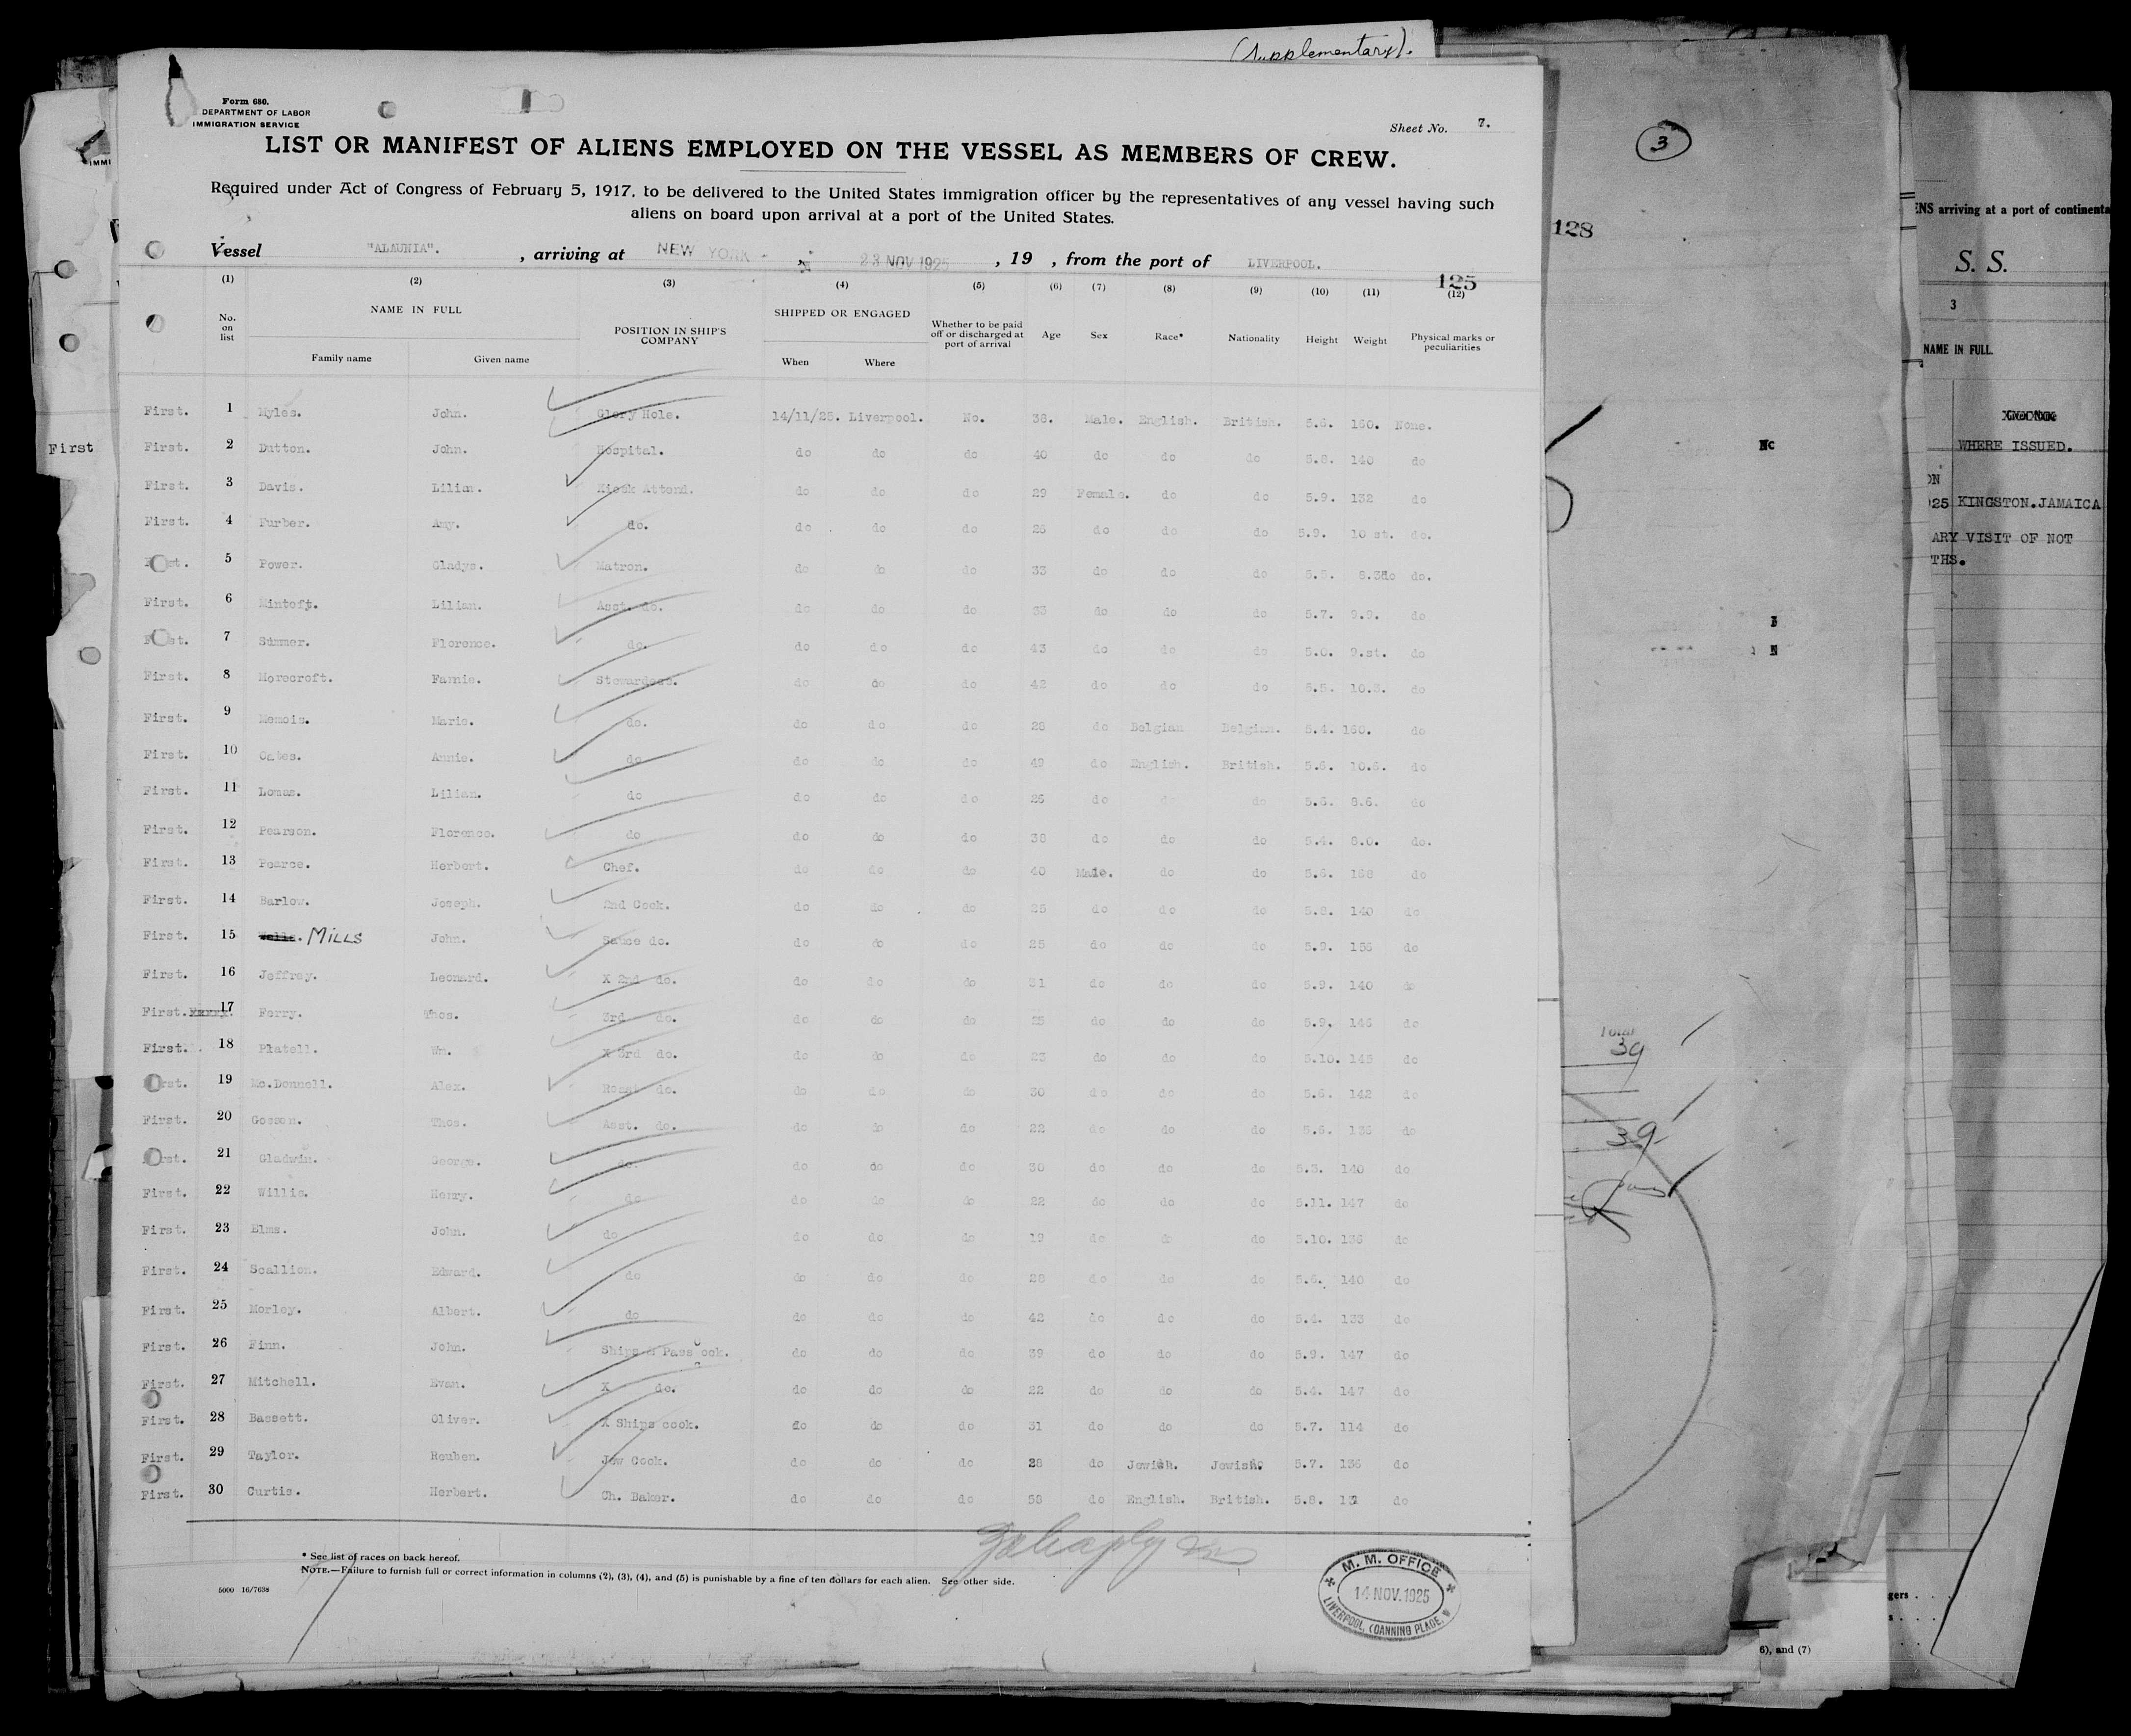 (Supplementary).
Form 680.
DEPARTMENT OF LABOR
IMMIGRATION SERVICE
Sheet No. 7.
LIST OR MANIFEST OF ALIENS EMPLOYED ON THE VESSEL AS MEMBERS OF CREW.
Required under Act of Congress of February 5, 1917, to be delivered to the United States immigration officer by the representatives of any vessel having such
aliens on board upon arrival at a port of the United States.
Vessel "ALAUNIA". , arriving at NEW YORK 23 NOV 1925 , 19 , from the port of LIVERPOOL.
125
(1) (2) (3) (4) (5) (6) (7) (8) (9) (10) (11) (12)
No. on list NAME IN FULL Family name Given name POSITION IN SHIP'S COMPANY SHIPPED OR ENGAGED When Where Whether to be paid off or discharged at port of arrival Age Sex Race* Nationality Height Weight Physical marks or peculiarities
First. 1 Myles. John. Glory Hole. 14/11/25. Liverpool. No. 38. Male. English. British. 5.6. 160. None.
First. 2 Dutton. John. Hospital. do do do 40 do do do 5.8. 140 do
First. 3 Davis. Lilian. Kiosk Attend. do do do 29 Female. do do 5.9. 132 do
First. 4 Furber. Amy. do. do do do 26 do do do 5.9. 10 st. do.
First. 5 Power. Gladys. Matron. do do do 33 do do do 5.5. do.
First. 6 Mintoft. Lilian. Asst. do. do do do 33 do do do 5.7. 9.9. do
First. 7 Summer. Florence. do. do do do 43 do do do 5.0. 9.st. do
First. 8 Morecroft. Fannie. Stewardess. do do do 42 do do do 5.5. 10.3. do
First. 9 Memois. Marie. do. do do do 28 do Belgian Belgian. 5.4. 160. do
First. 10 Oates. Annie. do do do do 49 do English. British. 5.6. 10.6. do
First. 11 Lomas. Lilian. do do do do 26 do do do 5.6. 8.6. do
First. 12 Pearson. Florence. do do do do 38 do do do 5.4. 8.0. do.
First. 13 Pearce. Herbert. Chef. do do do 40 Male. do do 5.6. 168 do
First. 14 Barlow. Joseph. 2nd Cook. do do do 25 do do do 5.8. 140 do
First. 15 MILLS John. Sauce do. do do do 25 do do do 5.9. 156 do
First. 16 Jeffrey. Leonard. X 2nd do. do do do 31 do do do 5.9. 140 do
First. 17 Ferry. Thos. 3rd do. do do do 25 do do do 5.9. 145 do
First. 18 Platell. Wm. X 3rd do. do do do 23 do do do 5.10. 145 do
First. 19 Mc.Donnell. Alex. Roast do. do do do 30 do do do 5.6. 142 do
First. 20 Gosson. Thos. Asst. do. do do do 22 do do do 5.6. 136 do
First. 21 Gladwin. George. do. do do do 30 do do do 5.3. 140 do
First. 22 Willis. Henry. do do do do 22 do do do 5.11. 147 do
First. 23 Elms. John. do do do do 19 do do do 5.10. 136 do
First. 24 Scallion. Edward. do do do do 28 do do do 5.6. 140 do
First. 25 Morley. Albert. do do do do 42 do do do 5.4. 133 do
First. 26 Finn. John. Ships & Pass Cook. do do do 39 do do do 5.9. 147 do
First. 27 Mitchell. Evan. X do. do do do 22 do do do 5.4. 147 do
First. 28 Bassett. Oliver. X Ships cook. do do do 31 do do do 5.7. 114 do
First. 29 Taylor. Reuben. Jew Cook. do do do 28 do Jewish. Jewish. 5.7. 136 do
First. 30 Curtis. Herbert. Ch. Baker. do do do 58 do English. British. 5.8. do
* See list of races on back hereof.
NOTE.—Failure to furnish full or correct information in columns (2), (3), (4), and (5) is punishable by a fine of ten dollars for each alien. See other side.
5000 16/7638
M. M. OFFICE
14 NOV. 1925
LIVERPOOL, (CANNING PLACE.)
First
3
128
Total
39
39
ENS arriving at a port of continenta
S. S.
3
NAME IN FULL.
WHERE ISSUED.
25 KINGSTON.JAMAICA
ARY VISIT OF NOT
THS.
6), and (7)